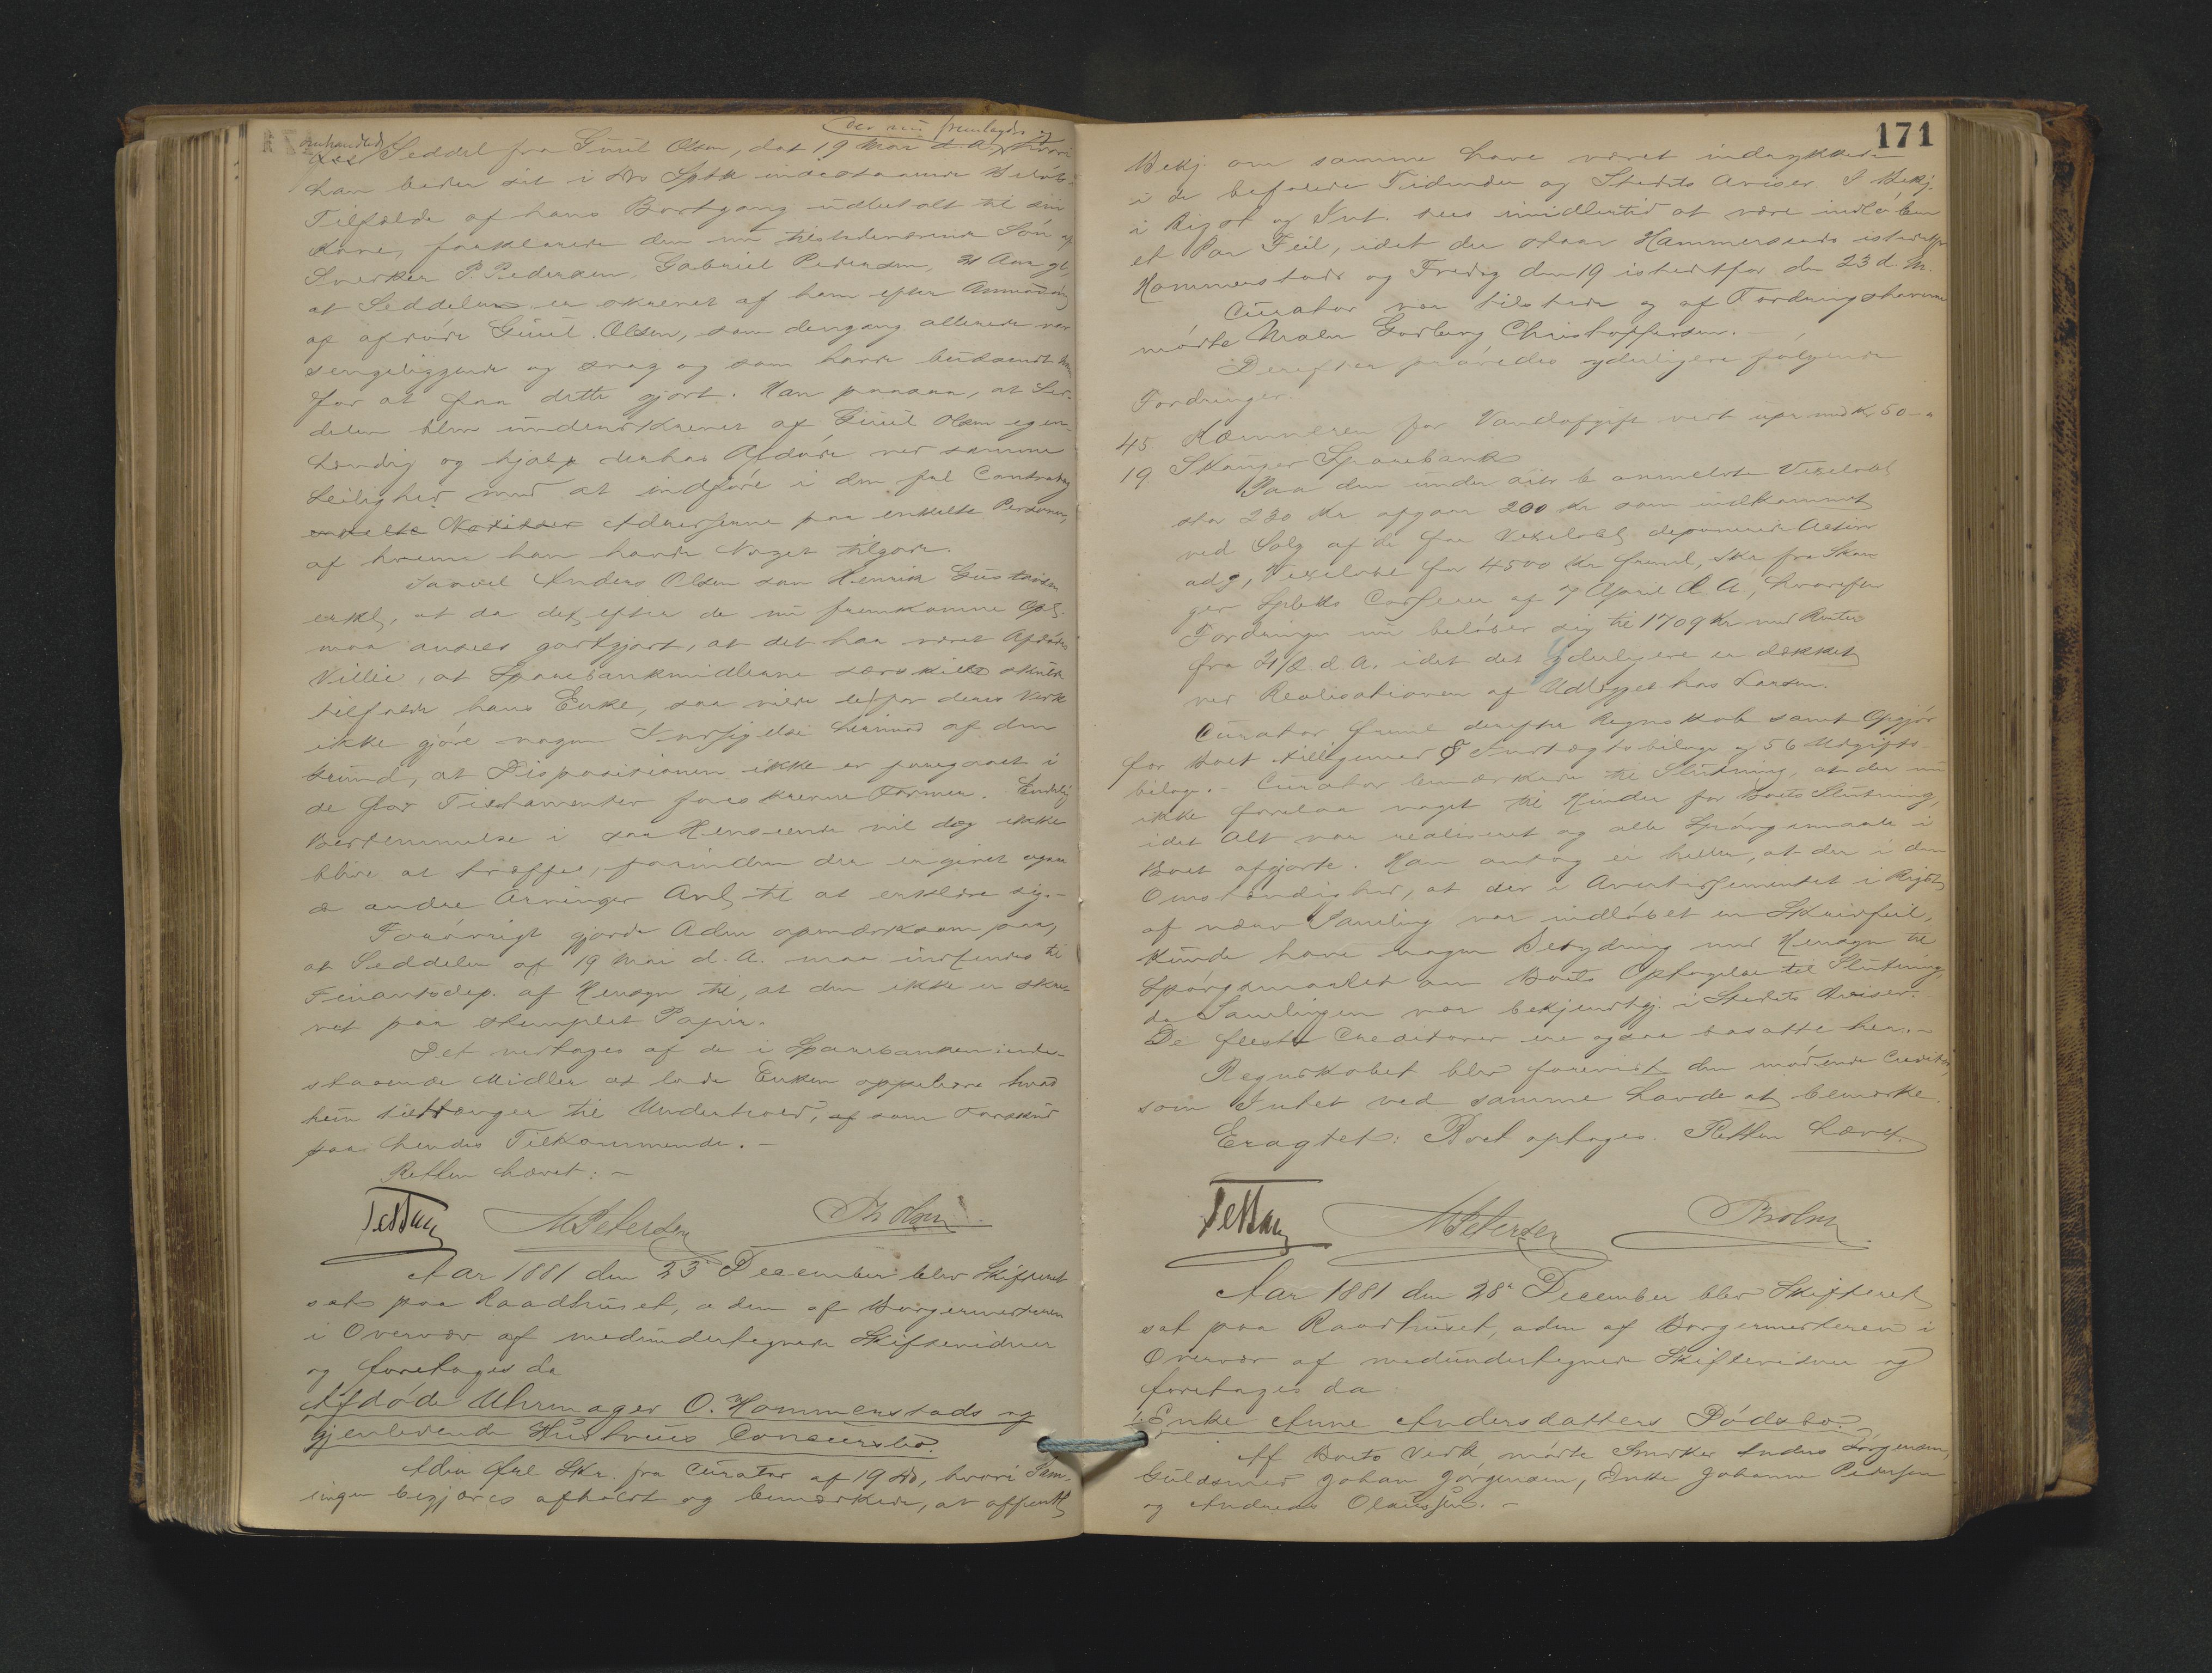 der nu fremlagdes og
omhandlede Seddel fra Guul Olsen, dat 19 Mai d. A., hvori
han beder sit i Drs Spbk indestaaende Beløb i
Tilfælde af hans Bortgang udbetalt til sin
Kone, forklarede den nu tilstedeværende Søn af
Snerker P. Pedersen, Gabriel Pedersen, 21 Aar gl,
at Seddelen er skrevet af ham efter Anmodning
af afdøde Guul Olsen, som dengang allerede var
sengeliggende og svag og som havde budsendt ham
for at faa dette gjort. Han paasaa, at Sed-
delen blev underskrevet af Guul Olsen egen-
hændig og hjalp derhos Afdøde ved samme
Leilighed med at indføre i den frl Contrabog
enkelte Notitser Adresserne paa enkelte Personer,
af hvem han havde Noget tilgode.
Saavel Anders Olsen som Henrik Gustavsen
erkl, at da det efter de nu fremkomne Opl.
maa ansees godtgjort, at det har været Afdødes
Villie, at Sparebankmidlerne særskilt skulde
tilfalde hans Enke, saa vilde de for deres Vedk
ikke gjøre nogen Indsigelse herimod af den
Grund, at Dispositionen ikke er foregaaet i
de for Testamenter foreskrevne Former. Endelig
Bestemmelse i saa Henseende vil dog ikke
blive at træffe, forinden der er givet ogsaa
de andre Arvinger Anl til at erklære sig.-
Forøvrigt gjorde Adm opmærksom paa,
at Seddelen af 19 Mai d. A. maa indsendes til
Finantsdep. af Hensyn til, at den ikke er skre-
vet paa stemplet Papir.
Det vedtoges af de i Sparebanken inde-
staaende Midler at lade Enken oppebære hvad
hun tiltrænger til Underhold, af som Forskud
paa hendes Tilkommende.-
Retten hævet:-
M Petersen
Th Olsen
Aar 1881 den 23 December blev Skifteret
sat paa Raadhuset, adm af Borgermesteren
i Overvær af medundertegnede Skiftevidner
og foretoges da
Afdøde Uhrmager O. Hammerstads og
gjenlevende Hustrues Concursbo.
Adm frl Skr. fra Curator af 19 ds, hvori Sam-
lingen begjæres afholdt og bemærkede, at offentl
171
Bekj om samme have været indrykkede
i de befalede Tidender og Stedets Aviser. I Bekj.
i Rigst og Int. sees imidlertid at være indløben
et Par Feil, idet der staar Hammersens istedetfor
Hammerstads og Fredag den 19 istedetfor den 23 d. M.
Curator var tilstede og af Fordringshaverne
mødte Maler Godberg Christoffersen.
Derefter prøvedes yderligere følgende
Fordringer.
45. Kæmneren for Vandafgift vedt upr med Kr 50 -
19 Skanger Sparebank
Paa den under div b anmeldte Vexelobl
stor 230 Kr afgaar 200 Kr som indkommet
ved Salg af de for Vexelobl deponerede Actier
adg, Vexelobl for 4500 Kr freml, Skr. fra Skan
ger Spbks Casserer af 7 April d. A., hvorefter
Fordringen nu beløber sig til 1709 Kr med Renter
fra 21/2 d. A. idet det yderligere er dækket
ved Realisationen af Udlægget hos Larsen.
Curator freml derefter Regnskab samt Opgjør
for Boet tilligemed 8 Indtægtsbilage og 56 Udgifts-
bilage.- Curator bemærkede til Slutning, at der nu
ikke forelaa noget til Hinder for Boets Slutning,
idet Alt var realiseret og alle Spørgsmaale i
Boet afgjorte. Han antog ei heller, at der i den
Omstændighed, at der i Avertissementet i Rigst
af nærv Samling var indløbet en Skrivfeil,
kunde have nogen Betydning med Hensyn til
Spørgsmaalet om Boets Optagelse til Slutning,
da Samlingen var bekjendtgj. i Stedets Aviser.
De fleste Creditorer ere ogsaa bosatte her.-
Regnskabet blev forevist den mødende Creditor,
som Intet ved samme havde at bemærke.
Eragtet: Boet optages. Retten hævet.
M Petersen
Th Olsen
Aar 1881 den 28 December blev Skifteret
sat paa Raadhuset, adm af Borgermesteren i
Overvær af medundertegnede Skiftevidner og
foretoges da
1. Enke Anne Andersdatters Dødsbo.
Af Boets Vedk mødte Snedker Anders Jørgensen,
Guldsmed Johan Jørgensen, Enke Johanne Pedersen
og Andreas Olaussen.-